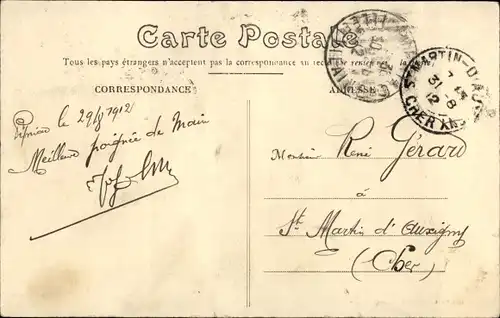 Carte Postale
Tous les pays étrangers n'acceptent pas la correspondance au recto
CORRESPONDANCE
le 29/8 1912
Meilleure poignée de Main
ADRESSE
ST MARTIN-D'A
7 15
31 8
12
CHER
Monsieur René Gérard
à
St. Martin d'Auxigny
(Cher)